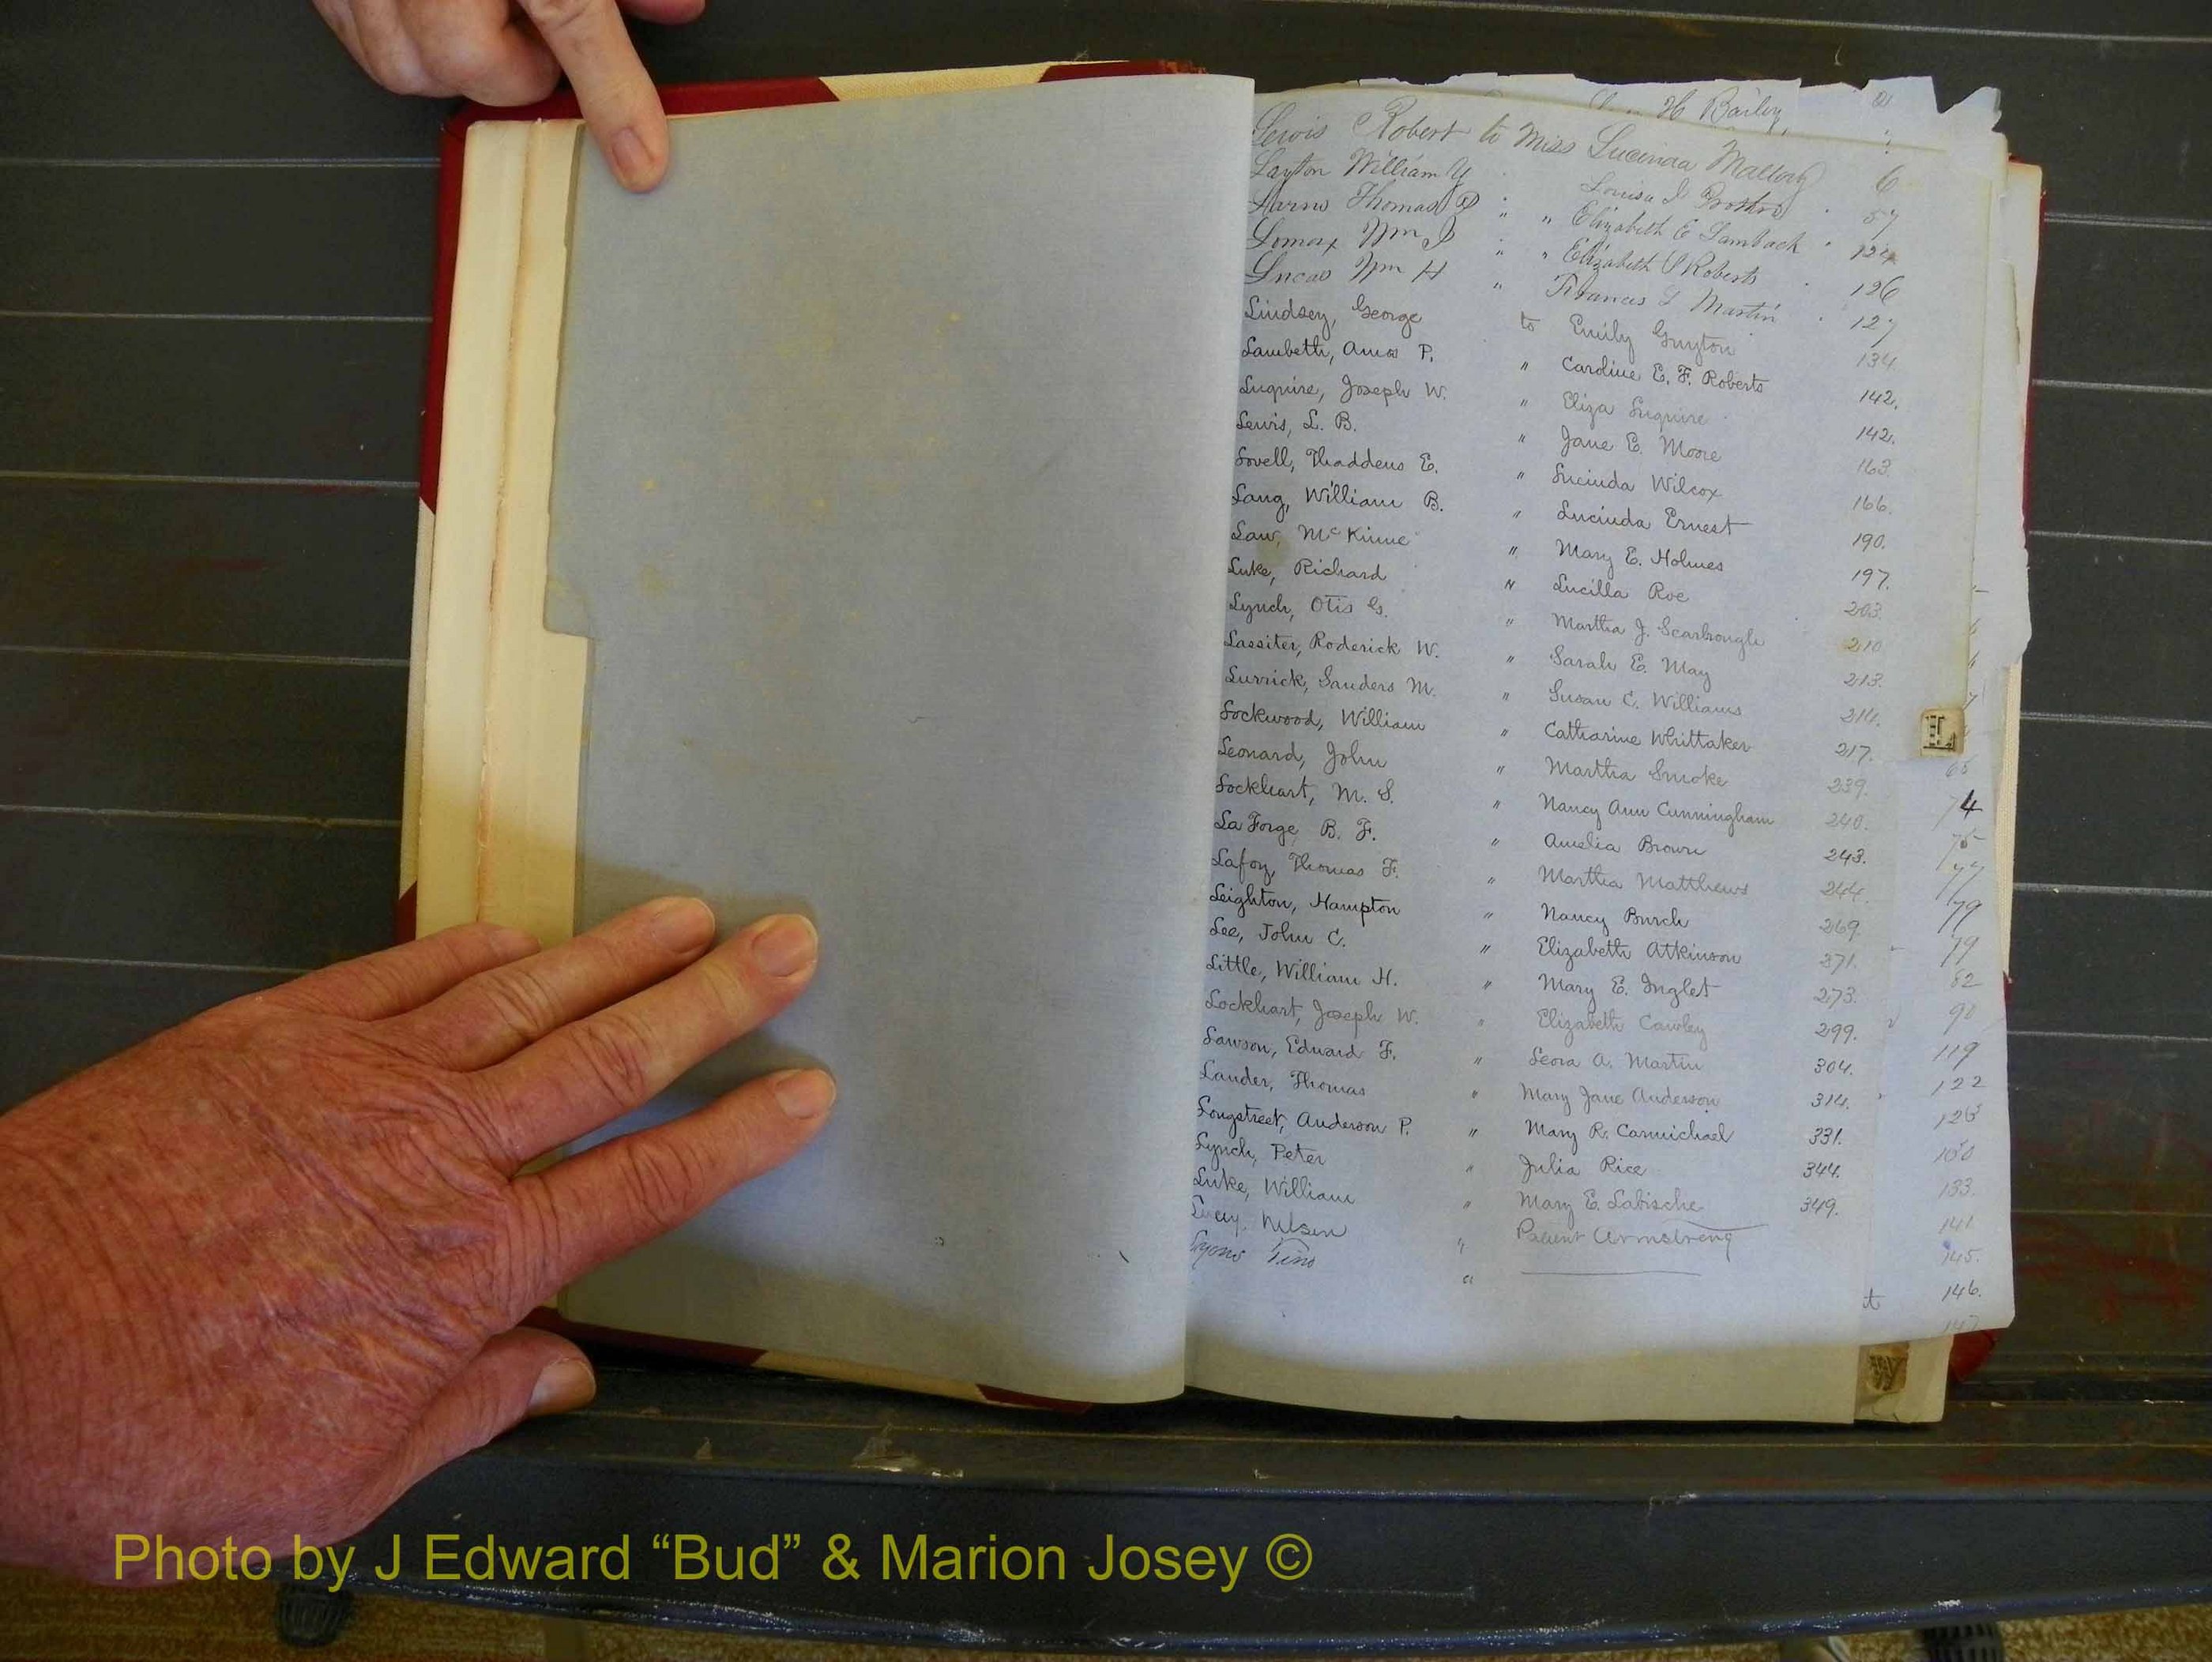 H Bailey,
Lewis Robert to Miss Lucinda Mallory 6
Layton William Y Louisa I 57
Thomas P " " Elizabeth E Lamback 124
Lomax Wm J " " Elizabeth Roberts 126
Lucas Wm H " Frances L Martin 127
Lindsey, George to Emily Guyton 134
Lambeth, Amos P. " Caroline E. F. Roberts 142.
Luquire, Joseph W. " Eliza Luquire 142.
Lewis, L. B. " Jane E. Moore 163.
Lovell, Thaddeus E. " Lucinda Wilcox 166.
Lang, William B. " Lucinda Ernest 190.
Law, McKinne " Mary E. Holmes 197.
Luke, Richard " Lucilla Roe 203.
Lynch, Otis G. " Martha J. Scarbough 210
Lassiter, Roderick W. " Sarah E. May 213.
Lurrick, Sanders M. " Susan C. Williams 214.
Lockwood, William " Catharine Whittaker 217.
Leonard, John " Martha Smoke 239.
Lockhart, M. S. " Nancy Ann Cunningham 240.
La Forge, B. F. " Amelia Brown 243.
Lafoy, Thomas F. " Martha Matthews 244.
Leighton, Hampton " Nancy Burch 269.
Lee, John C. " Elizabeth Atkinson 271.
Little, William H. " Mary E. Inglet 273.
Lockhart, Joseph W. " Elizabeth Cawley 299.
Lawson, Edward F. " Leora A. Martin 304.
Lauder, Thomas " Mary Jane Anderson 314.
Longstreet, Anderson P. " Mary R. Carmichael 331.
Lynch, Peter " Julia Rice 344.
Luke, William " Mary E. Labische 349.
Nelson " Armstrong
Lyons "
L
74
75
77
79
79
82
90
119
122
133.
141
145.
146.
147
W
Photo by J Edward “Bud” & Marion Josey ©